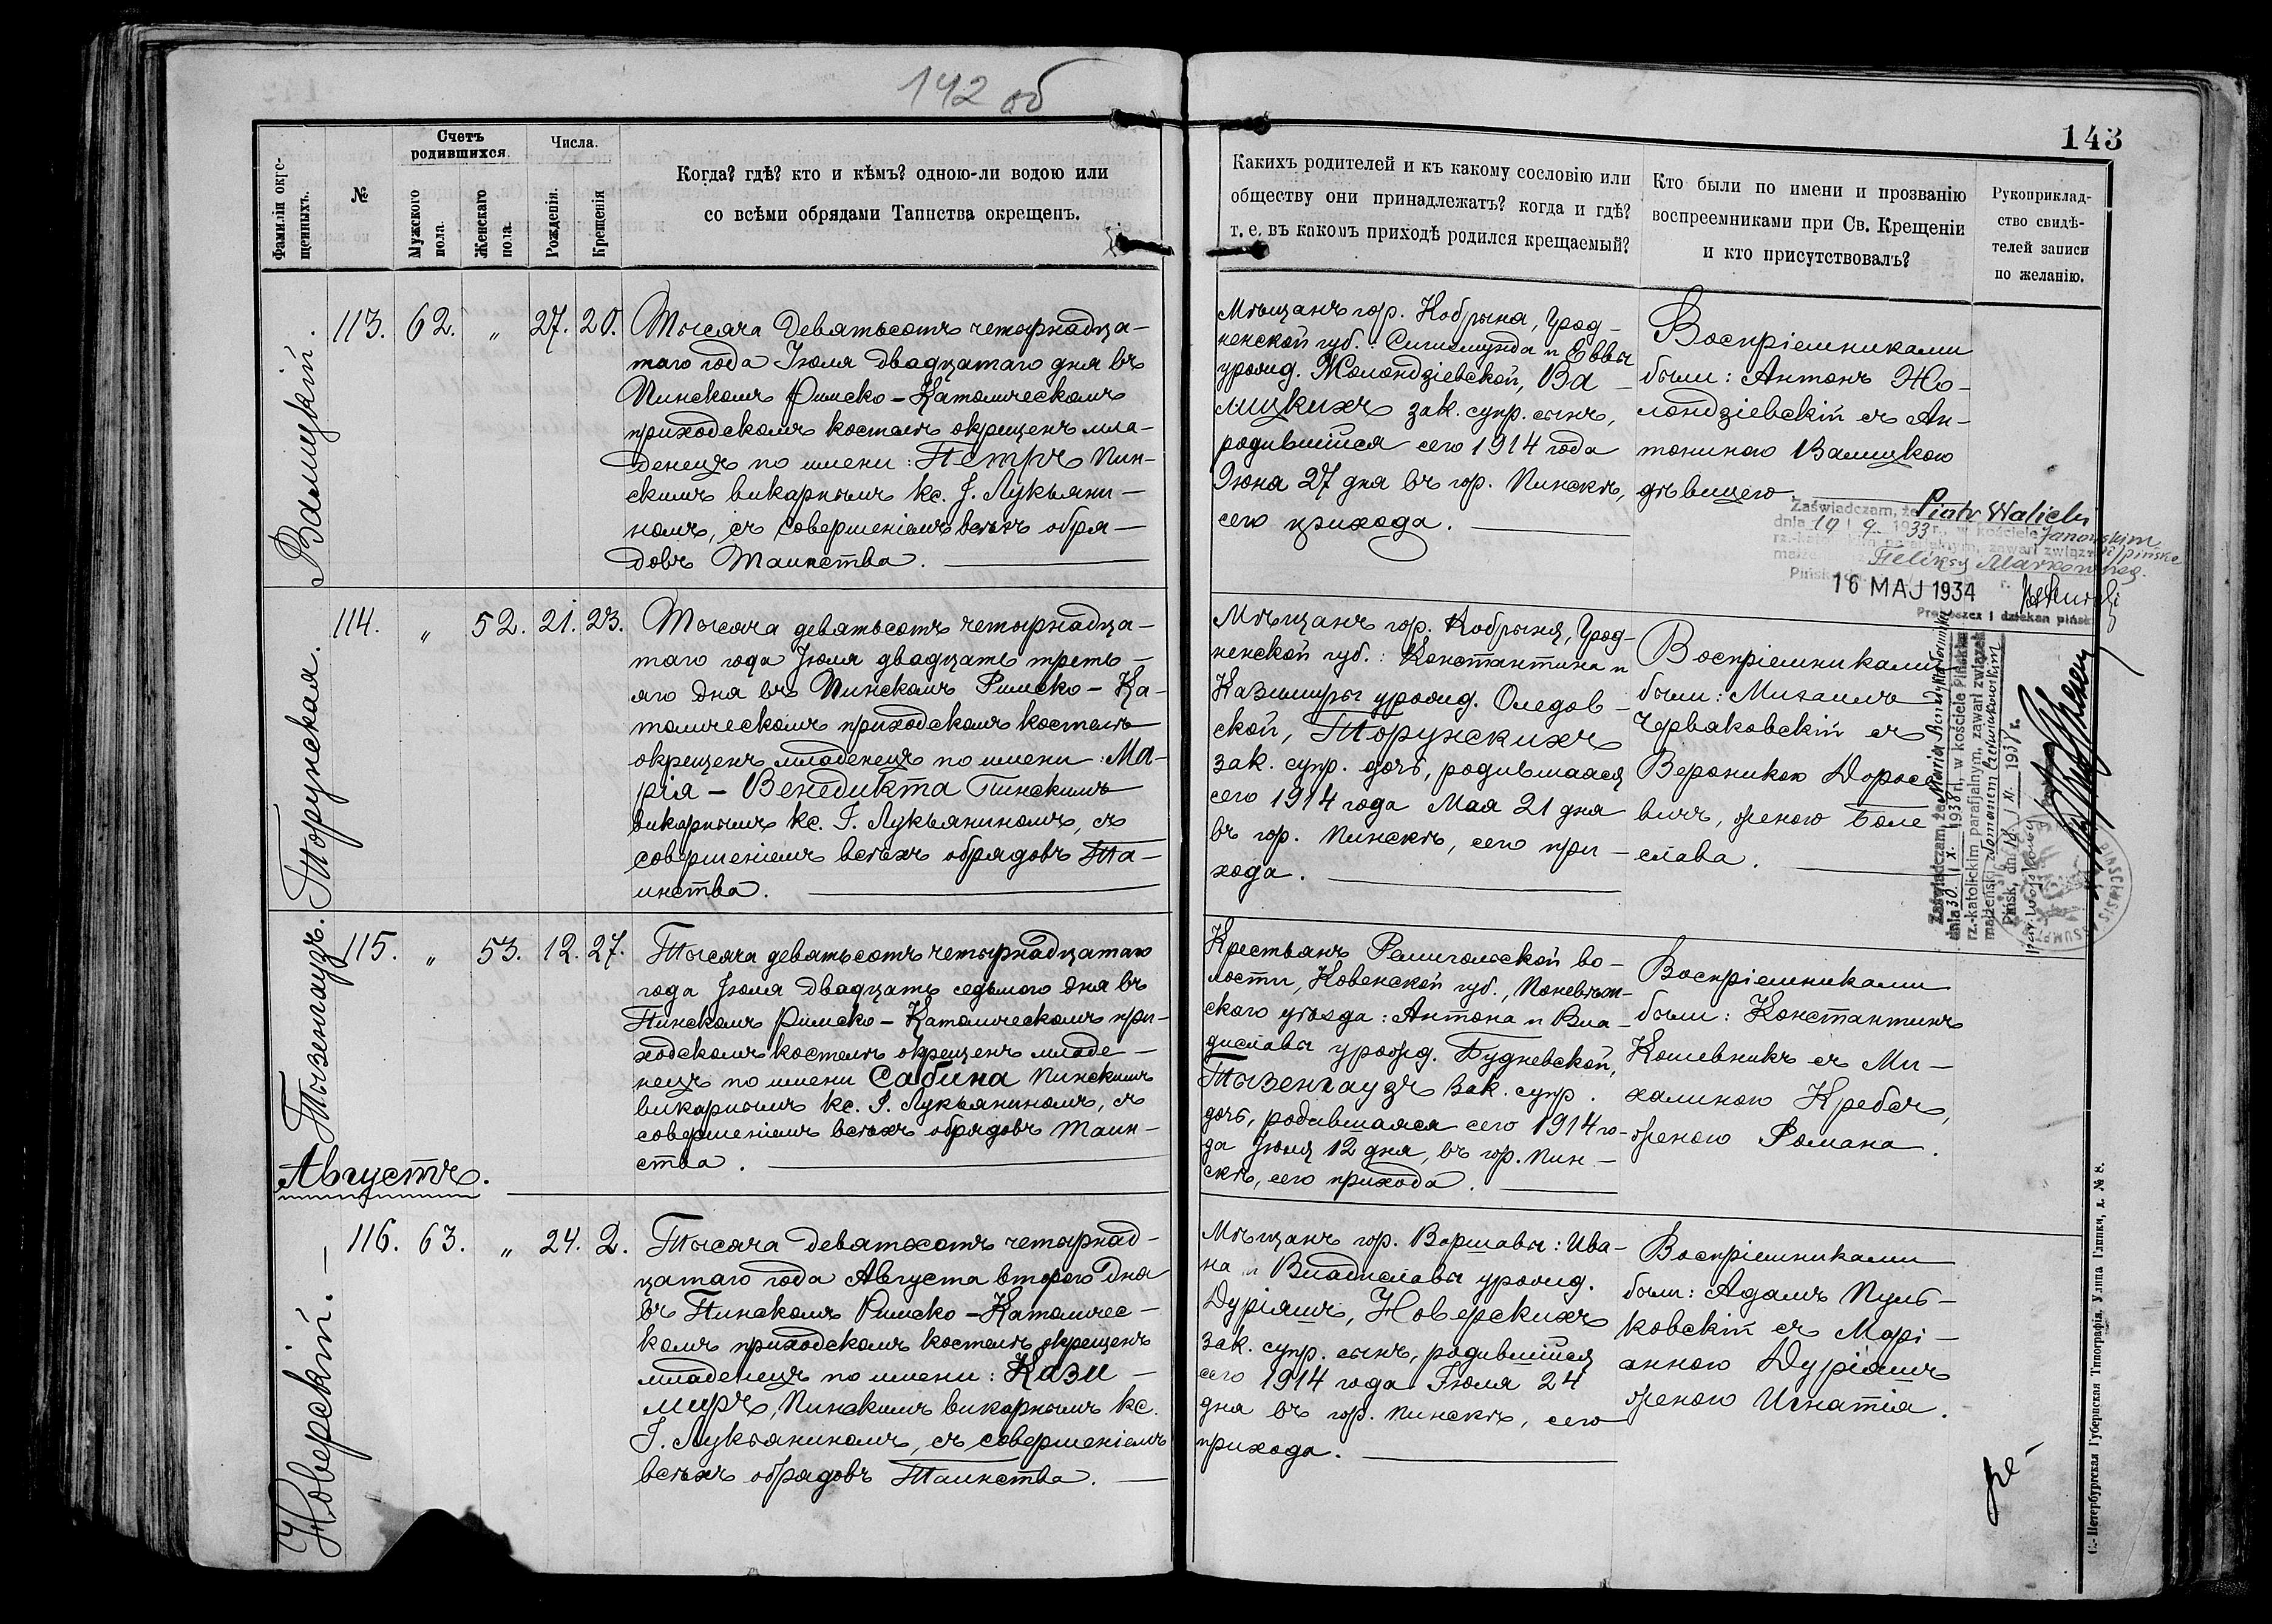 142 об
143
Фамиліи окре-
щенныхъ.
№
Счетъ
родившихся.
Мужского
пола.
Женскаго
пола.
Числа.
Рожденія.
Крещенія
Когда? гдѣ? кто и кѣмъ? одною-ли водою или
со всѣми обрядами Таинства окрещенъ.
Какихъ родителей и къ какому сословію или
обществу они принадлежатъ? когда и гдѣ?
т. е. въ какомъ приходѣ родился крещаемый?
Кто были по имени и прозванію
воспреемниками при Св. Крещеніи
и кто присутствовалъ?
Рукоприклад-
ство свидѣ-
телей записи
по желанію.
Валицкій.
113. 62. „ 27. 20.
Тысяча девятьсотъ четырнадца-
таго года Іюля двадцатаго дня въ
Пинскомъ Римско-Католическомъ
приходскомъ костелѣ окрещенъ мла-
денецъ по имени: Петръ Пин-
скимъ викарнымъ кс. І. Лукьяни-
номъ, съ совершеніемъ всѣхъ обря-
довъ Таинства.
Мѣщанъ гор. Кобрына, Грод-
ненской губ.: Сигизмунда и Еввы
урожд. Жолондзіевской, Ва-
лицкихъ зак. супр. сынъ,
родившійся сего 1914 года
Іюна 27 дня въ гор. Пинскѣ,
сего прихода.
Воспріемниками
были: Антонъ Жо-
лондзіевскій съ Ан-
тониною Валицкою
дѣвицею
Zaświadczam, że Piotr Walicki
dnia 19 9 1933 r., w kościele Janowskim
Feliksą Markowską.
Pińsk
16 MAJ 1934 r.
Proboszcz i dziekan piński
Торунская.
114. „ 52. 21. 23.
Тысяча девятьсотъ четырнадца-
таго года Іюля двадцать треть-
яго дня въ Пинскомъ Римско-Ка-
толическомъ приходскомъ костелѣ
окрещенъ младенецъ по имени: Ма-
рія-Венедикта Пинскимъ
викарнымъ кс. І. Лукьяниномъ, съ
совершеніемъ всѣхъ обрядовъ Та-
инства.
Мѣщанъ гор. Кобрыня, Грод-
ненской губ.: Константина и
Казимиры урожд. Оледов-
ской, Торунскихъ
зак. супр. дочь, родившаяся
сего 1914 года Мая 21 дня
въ гор. Пинскѣ, сего при-
хода.
Воспріемниками
были: Михаилъ
Червяковскій съ
Вероникою Доросе
вичъ, женою Боле
слава.
Zaświadczam, że Maria
dnia 30 X. 1938 r., w kościele Pińskim
rz.-katolickim parafjalnym, zawarł związek
małżeński z Romanem Czerwiakowskim
Pińsk, dn. 14 XI. 1938 r.
Тызенгаузъ.
115. „ 53. 12. 27.
Тысяча девятьсотъ четырнадцатаго
года Іюля двадцать седьмого дня въ
Пинскомъ Римско-Католическомъ при-
ходскомъ костелѣ окрещенъ младе-
нецъ по имени Сабина Пинскимъ
викарнымъ кс. І. Лукьяниномъ, съ
совершеніемъ всѣхъ обрядовъ Таин-
ства.
Крестьянъ Ремигольской во-
лости, Ковенской губ., Поневѣж-
скаго уѣзда: Антона и Вла-
диславы урожд. Будневской,
Тызенгаузъ зак. супр.
дочь, родившаяся сего 1914 го-
да Іюля 12 дня, въ гор. Пин-
скѣ, сего прихода.
Воспріемниками
были: Константинъ
Кошевникъ съ Ми-
халиною Кребсъ,
женою Романа.
Августъ.
Новерскій.
116. 63. „ 24. 2.
Тысяча девятьсотъ четырнад-
цатаго года Августа второго дня
въ Пинскомъ Римско-Католичес-
комъ приходскомъ костелѣ окрещенъ
младенецъ по имени: Кази-
миръ, Пинскимъ викарнымъ кс.
І. Лукьяниномъ, съ совершеніемъ
всѣхъ обрядовъ Таинства.
Мѣщанъ гор. Варшавы: Ива-
на и Владиславы урожд.
Дуріяшъ, Новерскихъ
зак. супр. сынъ, родившійся
сего 1914 года Іюля 24
дня въ гор. Пинскѣ, сего
прихода.
Воспріемниками
были: Адамъ Пуль-
ковскій съ Марі-
анною Дуріяшъ
женою Игнатія.
С.-Петербургская Губернская Типографія, Улица Глинки, д. № 8.